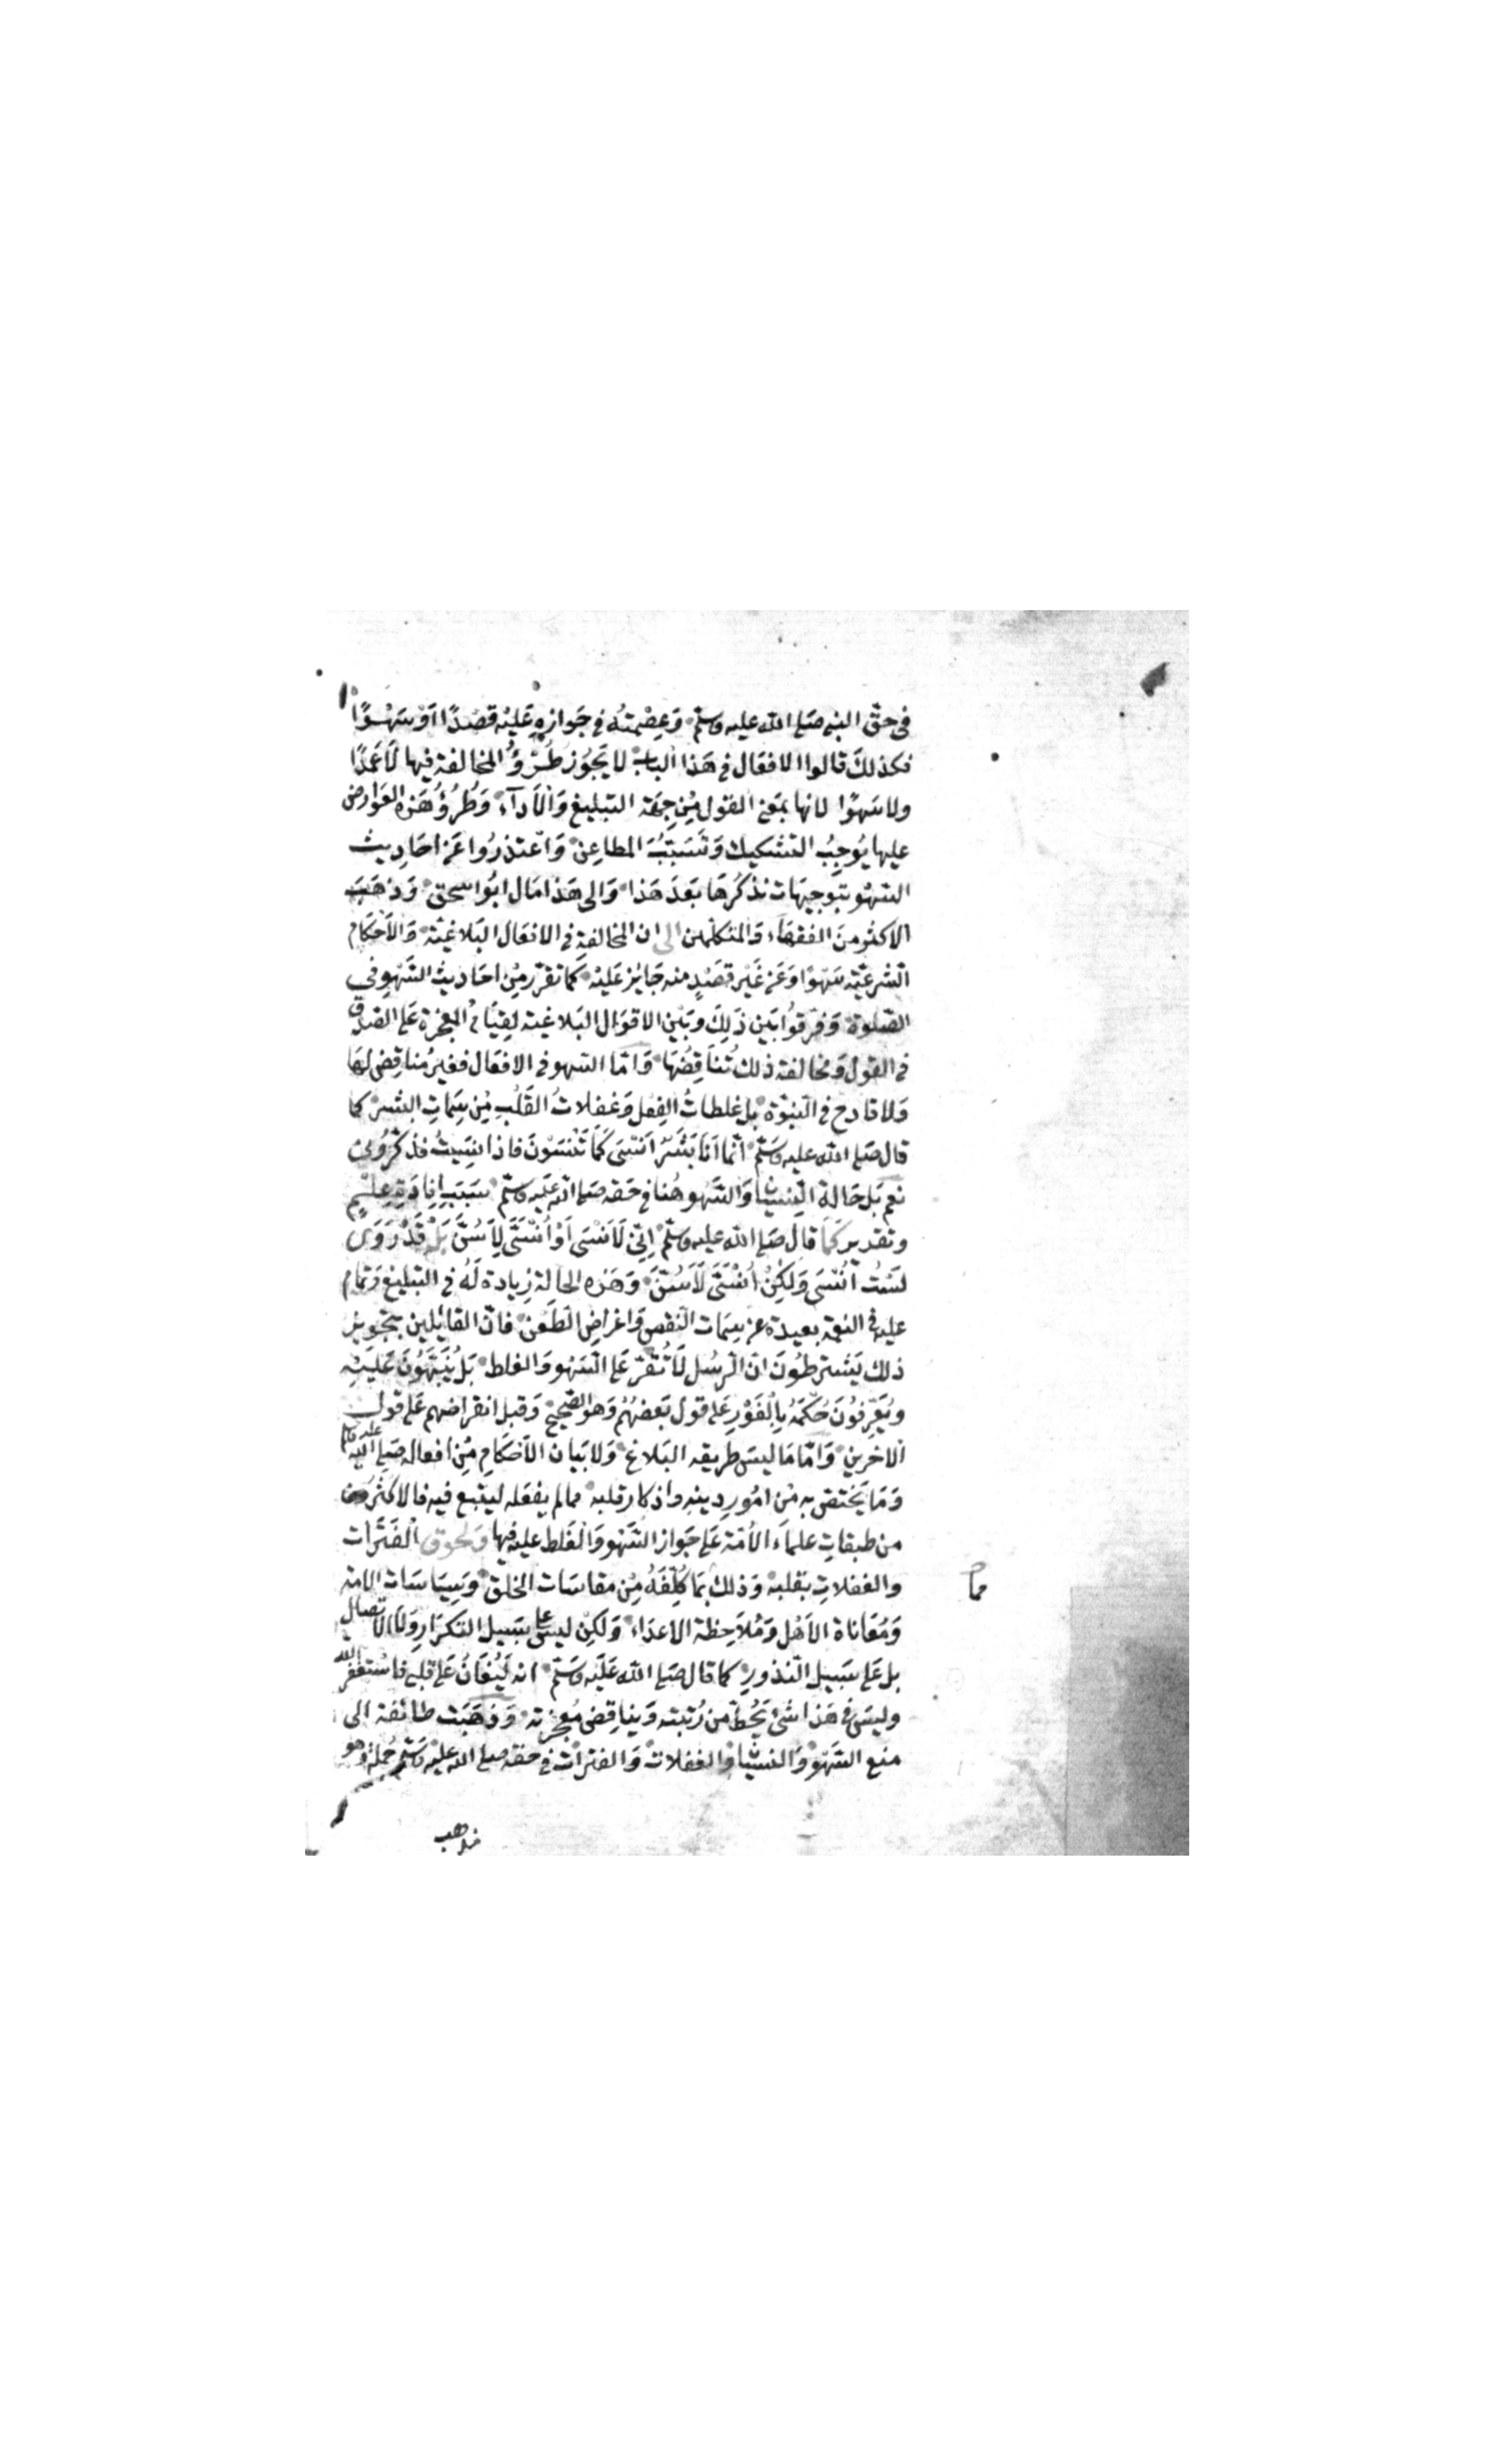 في حقّ النبي صَلى الله عليه وسلّم وَعِصْمتُه في جَوازهِ عَليْه قصْدًا اَوْسَهْوًا
فكذلكَ قالوا الافعَال في هَذا الباب لا يَجُوز طُرُوُّ المخالفة فيها لاَعَمْدًا
ولاسَهوًا لانها بمَعنى القول مِنْ جِهَة التبليغ وَالأدآء وَطُرُوُّ هَذه العَوارض
عليها يُوجِبُ التشكيك وَتُسَبِّبُ المطاعِن وَاعْتذرُوا عَن احَاديث
السّهْو بتَوجيهَات نذكرُهَا بَعدَ هَذا وَالى هَذا مَال ابُواسحق وَذهَبَ
الاكثر مِنَ الفقهَاء وَالمتكلمين الى ان المخالفة في الافعَال البَلاغيّة وَالأَحْكام
الشّرعيّة سَهْوًا وَعَن غَيْر قصْدٍ منه جَايِز عَليْه كما تقرّر مِنْ احَاديث السَّهْوِ في
الصّلوة وَفرّقوُا بَين ذَلِكَ وبَيْن الاقوَال البَلاغية لِقيَام المعجزة عَلى الصّدق
في القول وَمخالفة ذلك تُناقِضُهَا وَامّا السّهو في الافعَال فغَير مُناقِض لهَا
وَلا قادح في النبُوّة بل غلطاتُ الفِعْل وَغفلاتُ القَلْبِ مِنْ سِمَاتِ البَشر كما
قال صَلى الله عليه وسَلّم انّما اَنَا بَشَرٌ اَنْسَى كَمَا تَنْسَوْنَ فاذا نسَيتُ فذكّرُونى
نعم بَل حَالة النِسْيَان وَالسَّهو هُنا في حَقه صَلى الله عَليْه وسلّم سَبَبَ اِفادَةِ عِلْمٍ
وتقدير كَمَا قال صَلى الله عليه وسلّم اِنّي لَاَنْسَى اَوْ اُنْسَّى لاَسُنَّ بَلْ قَدْ رَوَى
لَسْتُ اَنْسَى وَلكِنْ اُنَسَّى لاَسُنَّ وَهَذه الحالة زيادة لَهُ في التبليغ وَتمام
عليه في النعمة بعيدة عن سِمَات النقص وَاغراض الطَعْن فانّ القائلين بتجويز
ذلك يَشترطُونَ انّ الرسُل لَا تُقَرّ عَلى السّهْو وَالغلط بَل يُنَبَّهُونَ عَليْه
ويُعَرَّفُونَ حُكْمَهُ بِالْفَوْر عَلى قول بَعضهُم وَهوالصّحيح وَقبل انقراضهم عَلى قول
الاخرين وَامّا مَا ليسَ طريقه البَلاغ وَلا بَيان الاَحْكامِ مِنْ افعاله صَلى الله عليه وسلم
وَمَا يَخْتصّ به مِنْ امُور دينه واذكار قلبه ممالم يفعَله ليتبع فيه فالاكثرُ
من طبقاتِ علماء الأمّة عَلى جَواز السّهو وَالغَلط عليه فيها وَلحُوق الفَتَرات
والغفلاتِ بقلبه وَذلك بمَا كُلِّفَهُ مِنْ مقاسَات الخلق وَسِيَاسَات الامّة
مما
وَمُعَاناة الاَهْل وَمُلاَحِظة الاعدَاء وَلكِنْ ليسَ على سَبيل التكرَار وَلاَ الاتصال
بل عَلى سَبيل النذور كما قال صَلى الله عَليْه وسَلّم انه لَيُغَانُ عَلى قلبى فاسْتغفر الله
وليسَ في هَذا شئ يَحُطّ من رُتبته وَيناقِض مُعْجزته وَذهَبَت طائفة الى
منع السَّهْو وَالنسْيَان وَالغفلات وَالفترَات في حَقه صلى الله عليْه وسَلّم جُملة وهو
مذهب